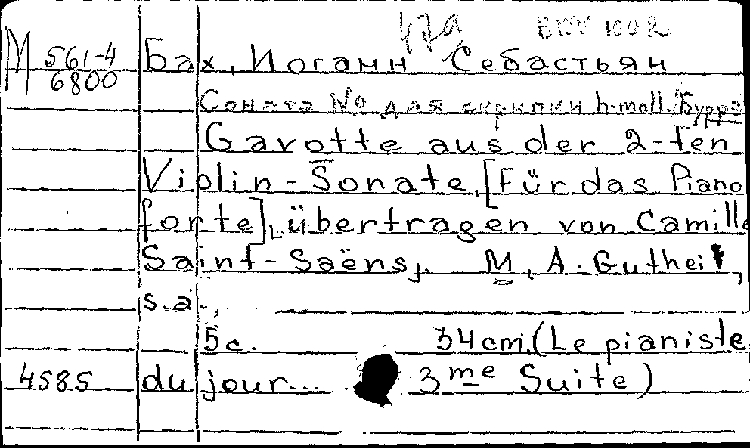 47а BWV 1002
М 561-4
6800
Бах, Иоганн Себастьян
Соната № для скрипки h-moll. Бурре
Gavotte aus der 2-ten
Violin-Sonate, [für das Piano
forte], übertragen von Camille
Saint-Saëns,. M., A. Gutheil,
s.a.,
5 c. 34 cm. (Le pianiste
4585 du jour... 3me Suite)